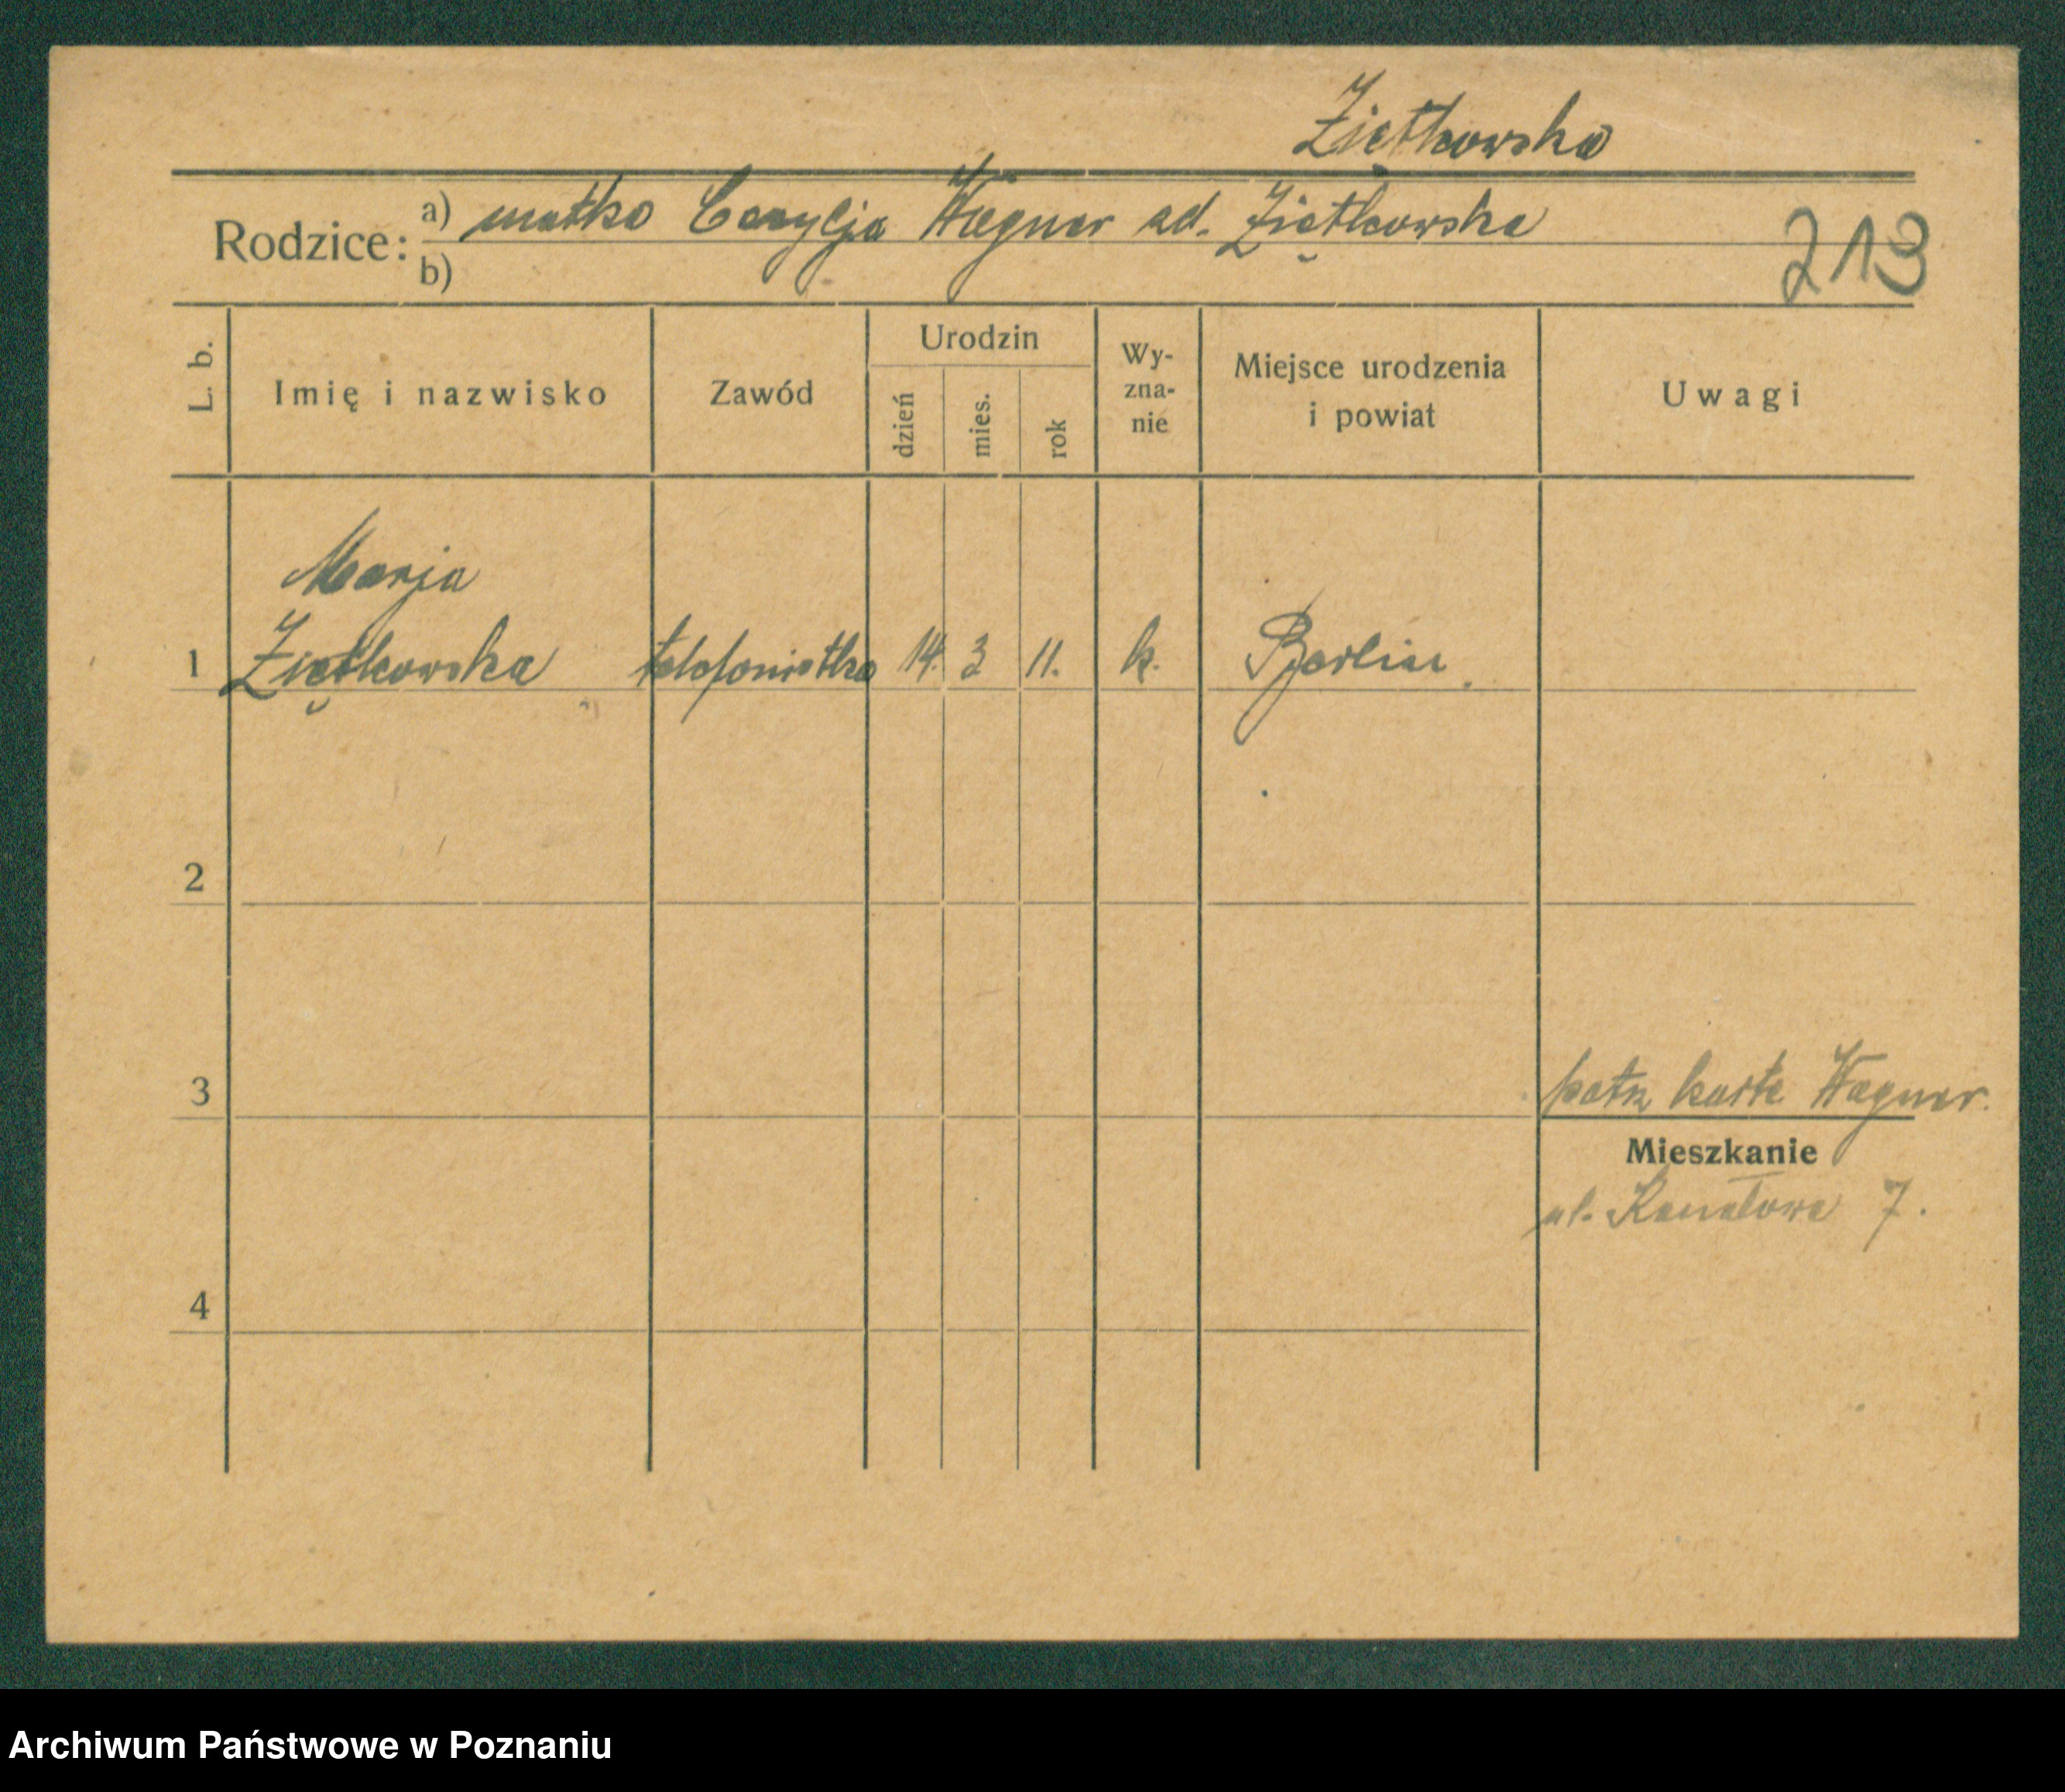 Ziętkowska
Rodzice: a) matka Cecylja Wegner zd. Ziętkowska
b)
213
L. b.
Imię i nazwisko
Zawód
Urodzin
dzień
mies.
rok
Wy-
zna-
nie
Miejsce urodzenia
i powiat
Uwagi
Marja
1 Ziętkowska telefonistka 14. 3 11. k. Berlin
2
3
patrz karta Wegner.
Mieszkanie
ul. Kanałowa 7.
4
Archiwum Państwowe w Poznaniu